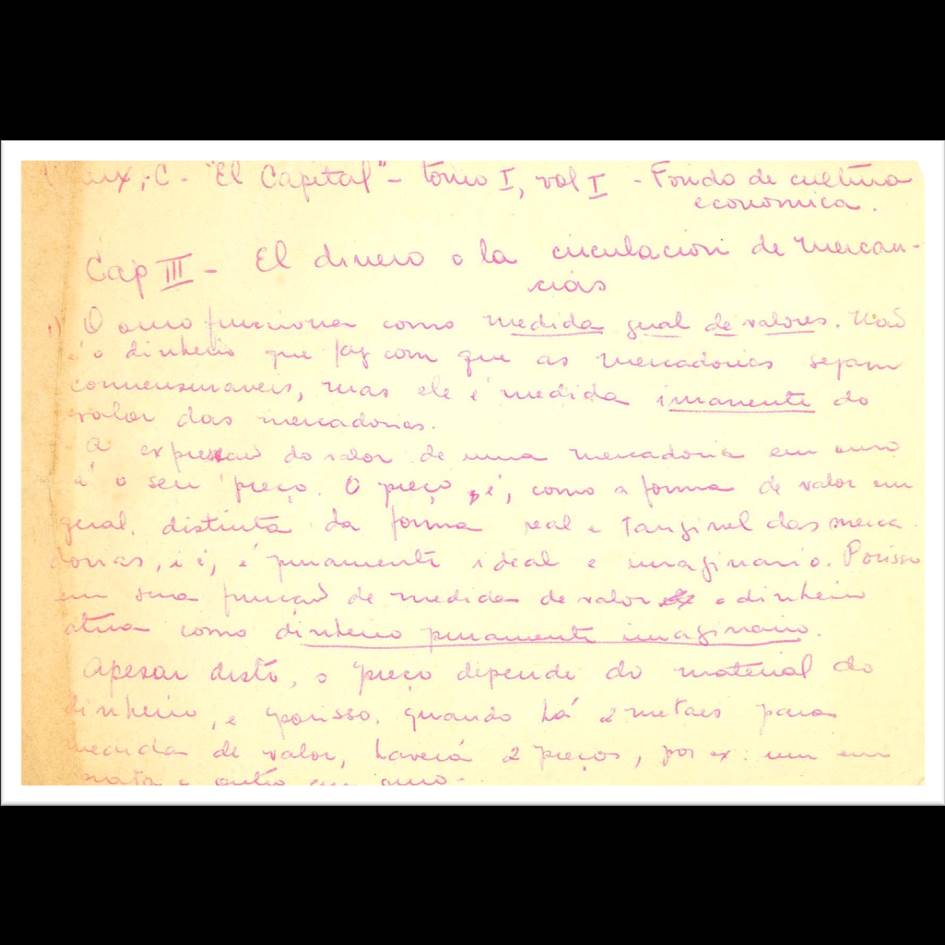 Marx, C - "El Capital" - tomo I, vol I - Fondo de cultura
economica.
Cap III - El dinero o la circulacion de mercan-
cias
1) O ouro funciona como medida geral de valores. Não
é o dinheiro que faz com que as mercadorias sejam
comensuraveis, mas ele é medida imanente do
valor das mercadorias.
A expressão do valor de uma mercadoria em ouro
é o seu preço. O preço, é, como a forma de valor em
geral, distinta da forma real e tangivel das merca-
dorias, i é, é puramente ideal e imaginario. Porisso
em sua função de medida de valor o dinheiro
atua como dinheiro puramente imaginario.
Apesar disto, o preço depende do material do
dinheiro, e porisso, quando há 2 metaes para
medida de valor, haverá 2 preços, por ex: um em
prata e outro em ouro.